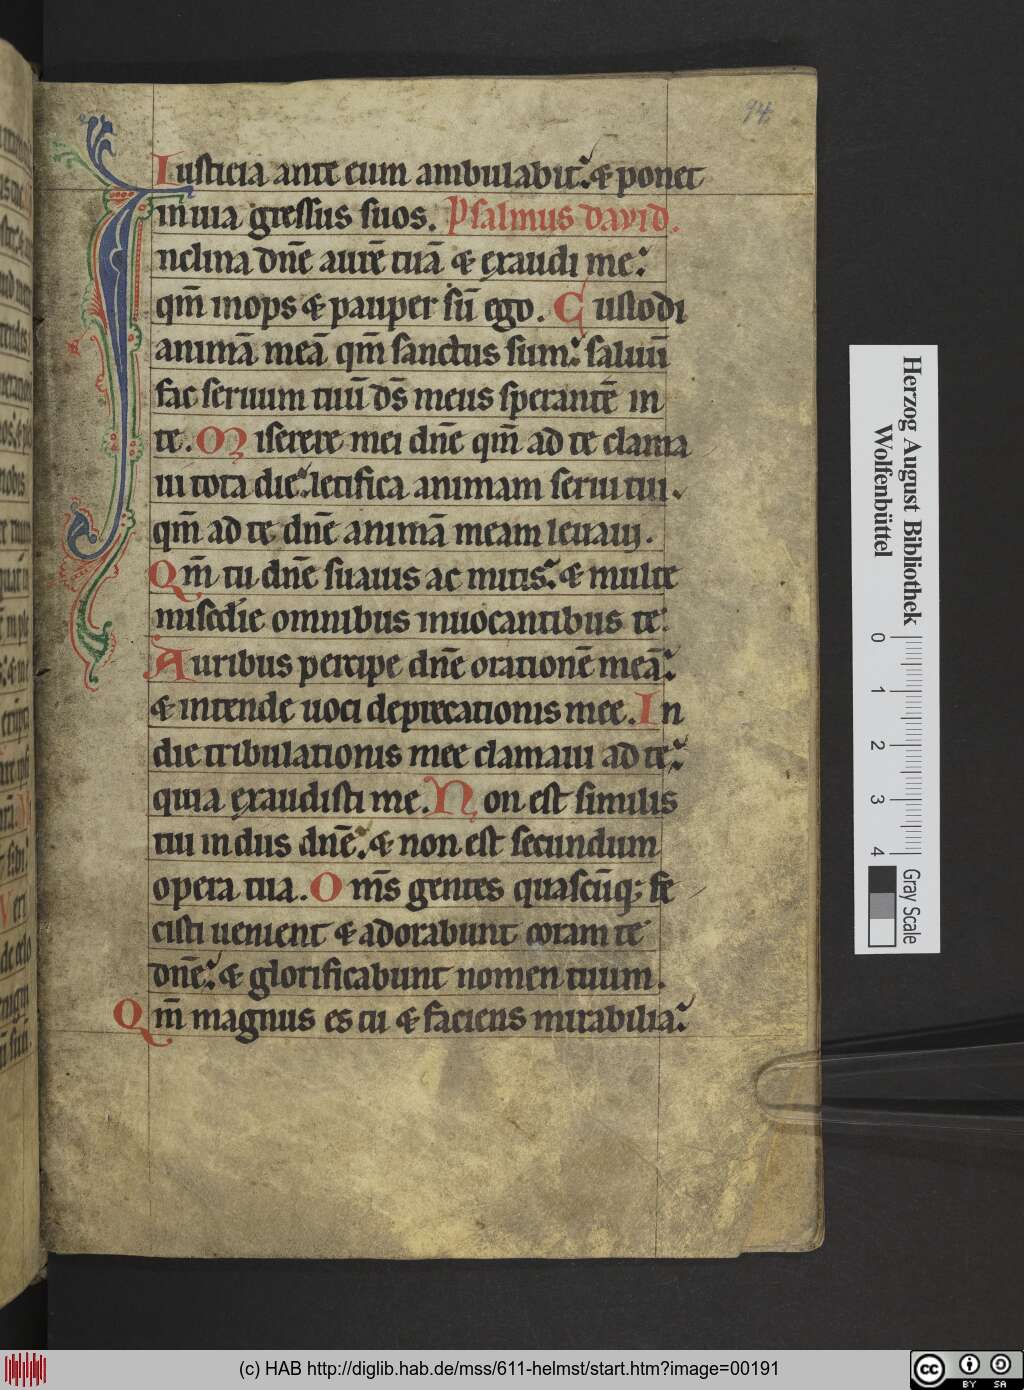 94
Iusticia ante eum ambulabit. & ponet
in uia gressus suos. Psalmus david.
nclina dn̄e aurē tuā & exaudi me.
qm̄ inops & pauper sū ego. Custodi
animā meā qm̄ sanctus sum. saluū
fac seruum tuū ds̄ meus sperantē in
te. Miserere mei dn̄e qm̄ ad te clama
ui tota die. letifica animam serui tui.
qm̄ ad te dn̄e animā meam leuaui.
Qm̄ tu dn̄e suauis ac mitis. & multe
miscd̄ie omnibus inuocantibus te.
Auribus percipe dn̄e orationē meā.
& intende uoci deprecationis mee. In
die tribulationis mee clamaui ad te.
quia exaudisti me. Non est similis
tui in dus dn̄e. & non est secundum
opera tua. Omn̄s gentes quascūq; fe
cisti uenient & adorabunt coram te
dn̄e. & glorificabunt nomen tuum.
Qm̄ magnus es tu & faciens mirabilia.
Herzog August Bibliothek
Wolfenbüttel
0 1 2 3 4
Gray Scale
(c) HAB http://diglib.hab.de/mss/611-helmst/start.htm?image=00191
cc BY SA